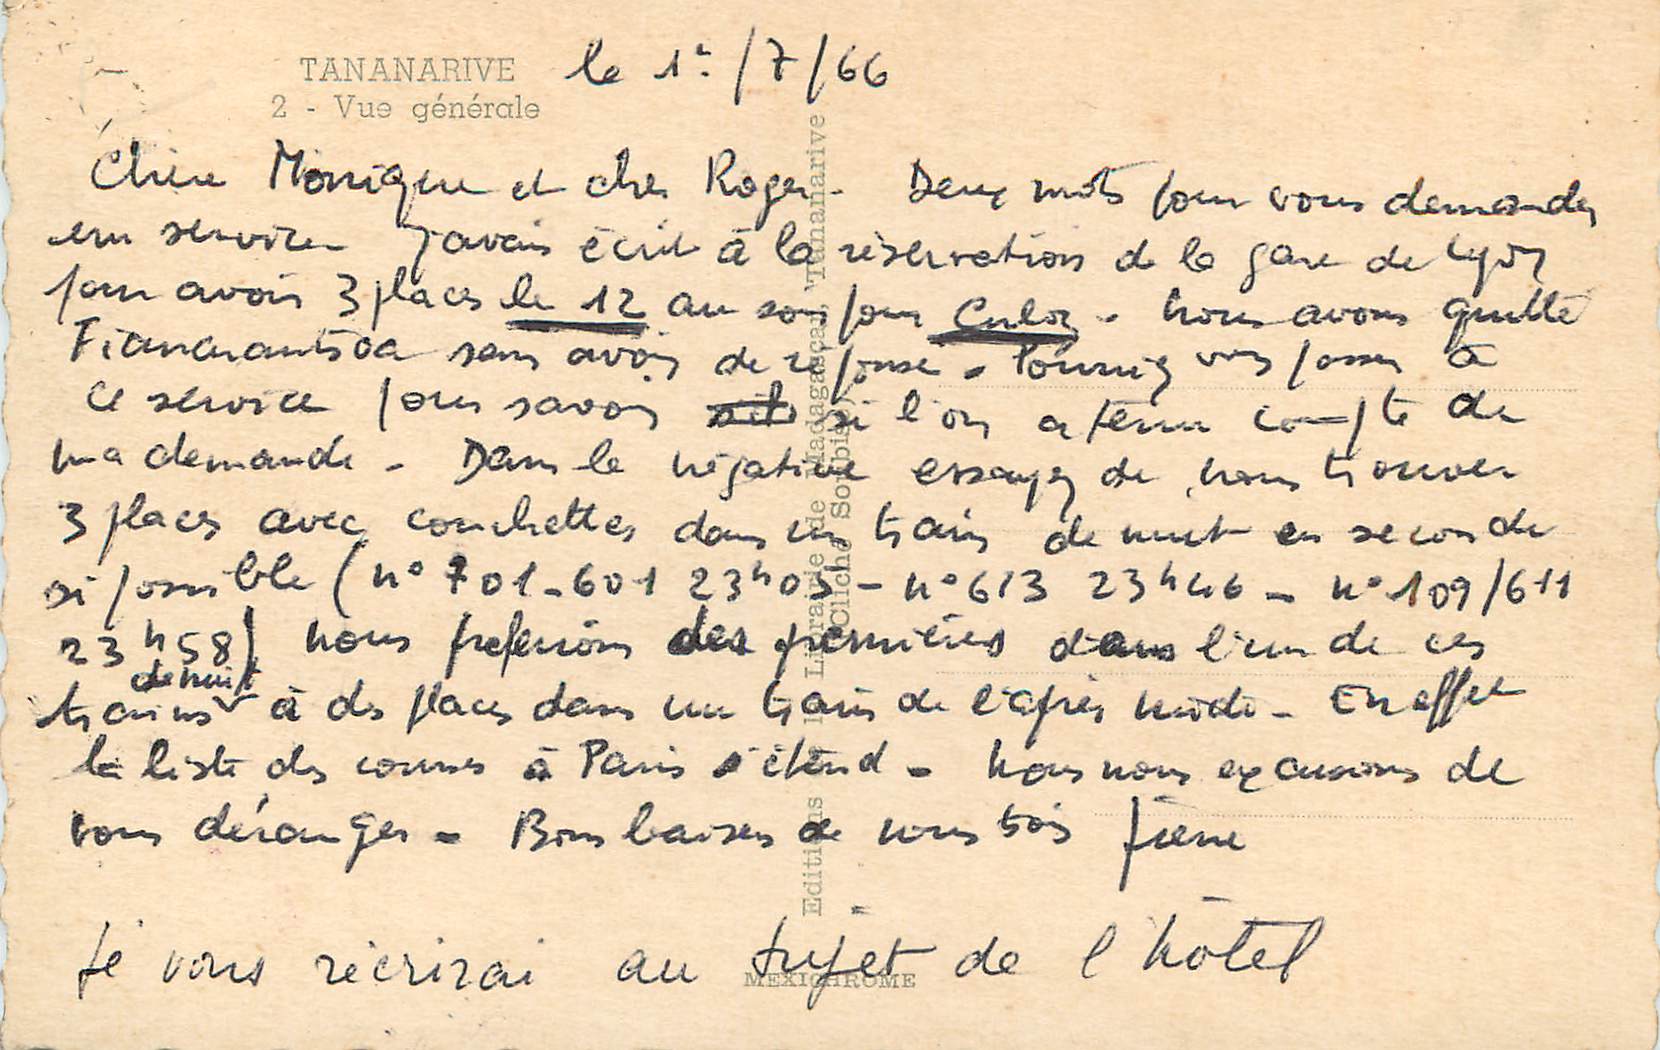 TANANARIVE
2 - Vue générale
le 1er/7/66
Chère Monique et cher Roger. Deux mots pour vous demander
un service j'avais écrit à la réservation de la gare de Lyon
pour avoir 3 places le 12 au soir pour Culoz. Nous avons quitté
Fianarantsoa sans avoir de réponse. Pourriez vous passer à
ce service pour savoir si l'on a tenu compte de
ma demande. Dans la négative essayez de nous trouver
3 places avec couchettes dans un train de nuit en seconde
si possible (n° 701-601 23h03 - n° 613 23h46 - n° 109/611
23h58) nous préférions des premières dans l'un de ces
trains de nuit à des places dans un train de l'après midi. En effet
la liste des courses à Paris s'étend. Nous nous excusons de
vous déranger. Bons baisers de nous trois Pierre
Je vous récrirai au sujet de l'hôtel
Editions de la Librairie de Madagascar, Tananarive
Cliché Sorbis
MEXICHROME